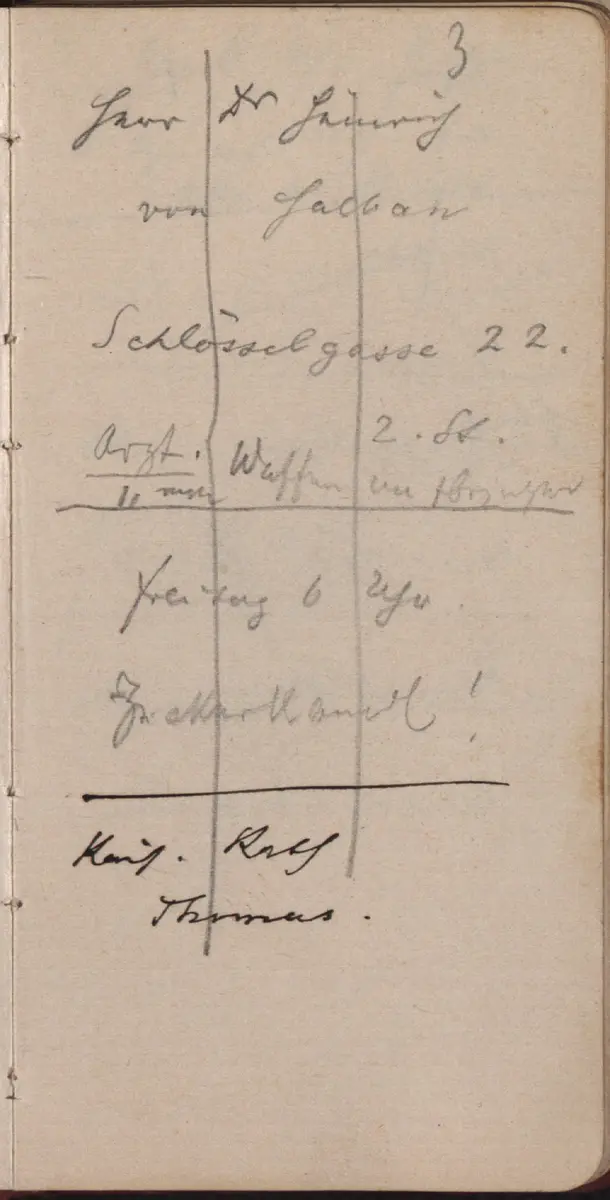 3
Herr Dr Heinrich
von Halban
Schlösselgasse 22.
2. St.
Arzt. Waffen
Freitag 6 Uhr
Zuckerkandl!
Kais. Rath
Thomas.